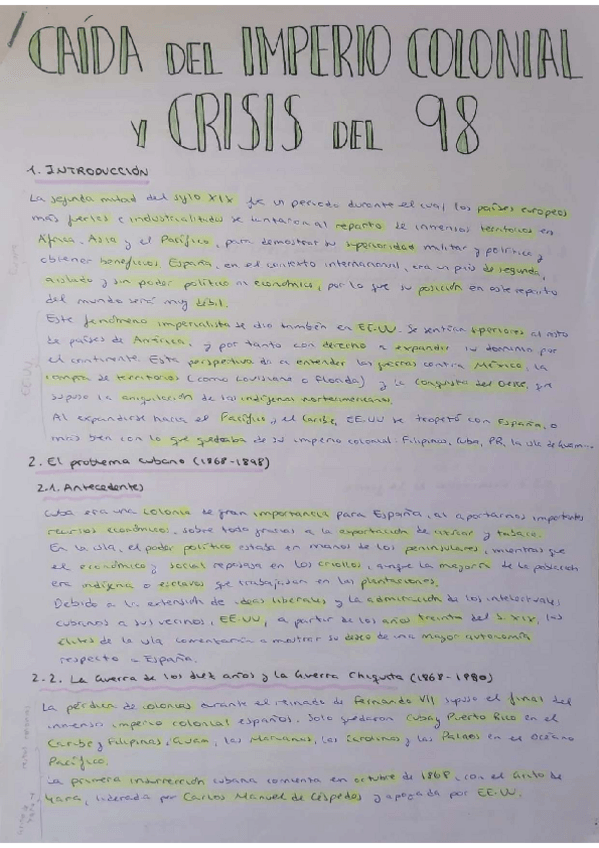 CAÍDA DEL IMPERIO COLONIAL
Y CRISIS DEL 98
1. INTRODUCCIÓN
La segunda mitad del siglo XIX fue un periodo durante el cual los países europeos
más fuertes e industrializados se lanzaron al reparto de inmensos territorios en
África, Asia y el Pacífico, para demostrar su superioridad militar y política y
obtener beneficios. España, en el contexto internacional, era un país de segunda,
aislado y sin poder político ni económico, por lo que su posición en este reparto
del mundo será muy débil.
Este fenómeno imperialista se dio también en EE.UU. Se sentían superiores al resto
de países de América, y por tanto con derecho a expandir su dominio por
el continente. Esta perspectiva da a entender las guerras contra México, la
compra de territorios (como Louisiana o Florida) y la conquista del Oeste, que
supuso la aniquilación de los indígenas norteamericanos.
Al expandirse hacia el Pacífico y el Caribe, EE.UU se tropezó con España, o
más bien con lo que quedaba de su imperio colonial: Filipinas, Cuba, PR, la isla de Guam...
2. El problema cubano (1868-1898)
2.1. Antecedentes
Cuba era una colonia de gran importancia para España, al aportarnos importantes
recursos económicos, sobre todo gracias a la exportación de azúcar y tabaco.
En la isla, el poder político estaba en manos de los peninsulares, mientras que
el económico y social reposaba en los criollos, aunque la mayoría de la población
era indígena o esclavos que trabajaban en las plantaciones.
Debido a la extensión de ideas liberales y la admiración de los intelectuales
cubanos a sus vecinos, EE.UU, a partir de los años treinta del S. XIX, las
élites de la isla comenzarán a mostrar su deseo de una mayor autonomía
respecto a España.
2.2. La Guerra de los diez años y la Guerra Chiquita (1868-1880)
La pérdida de colonias durante el reinado de Fernando VII supuso el final del
inmenso imperio colonial español. Solo quedaron Cuba y Puerto Rico en el
Caribe y Filipinas, Guam, las Marianas, las Carolinas y las Palaos en el Océano
Pacífico.
La primera insurrección cubana comienza en octubre de 1868, con el Grito de
Yara, liderada por Carlos Manuel de Céspedes y apoyada por EE.UU.